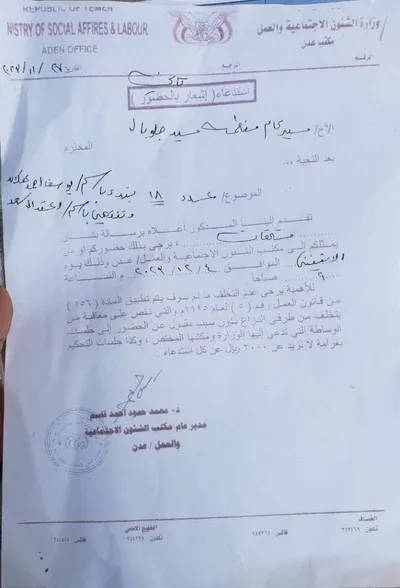 REPUBLIC OF YEMEN
NISTRY OF SOCIAL AFFIRES & LABOUR
ADEN OFFICE
وزارة الشئون الاجتماعية والعمل
مكتب عدن
التاريخ ٢٠٢٣/١١/٢٧
المرجع
الرقم
استدعاء ( إشعار بالحضور )
الأخ/ مدير عام منظمة ميد جلوبال
المحترم
بعد التحية ..
الموضوع/ عدد ١٨ تبتدي باسم/ يوسف احمد
وتنتهي باسم/
تقدم إلينا المذكور أعلاه برسالة بشأن
مستحقات، يرجى بذلك حضوركم أو من
يمثلكم إلى مكتب الشئون الاجتماعية والعمل/ عدن وذلك يوم
الاثنين الموافق ٢٠٢٣/١٢/٤م الساعة
٩ صباحا
للأهمية يرجى عدم التخلف ما لم سوف يتم تطبيق المادة (١٥٦)
من قانون العمل رقم (٥) لعام ١٩٩٥م والتي تنص على معاقبة من
يتخلف من طرفي النزاع بدون سبب مقبول عن الحضور إلى جلسات
الوساطة التي تدعي إليها الوزارة ومكتبها المختص، وكذا جلسات التحكيم
بغرامة لا تزيد عن ٢٠٠٠ ريال عن كل استدعاء.
د. محمد حمود أحمد قاسم
مدير عام مكتب الشئون الاجتماعية
والعمل / عدن
الخساف
الخليج الأمامي
تلفون
فاكس
تلفون
فاكس